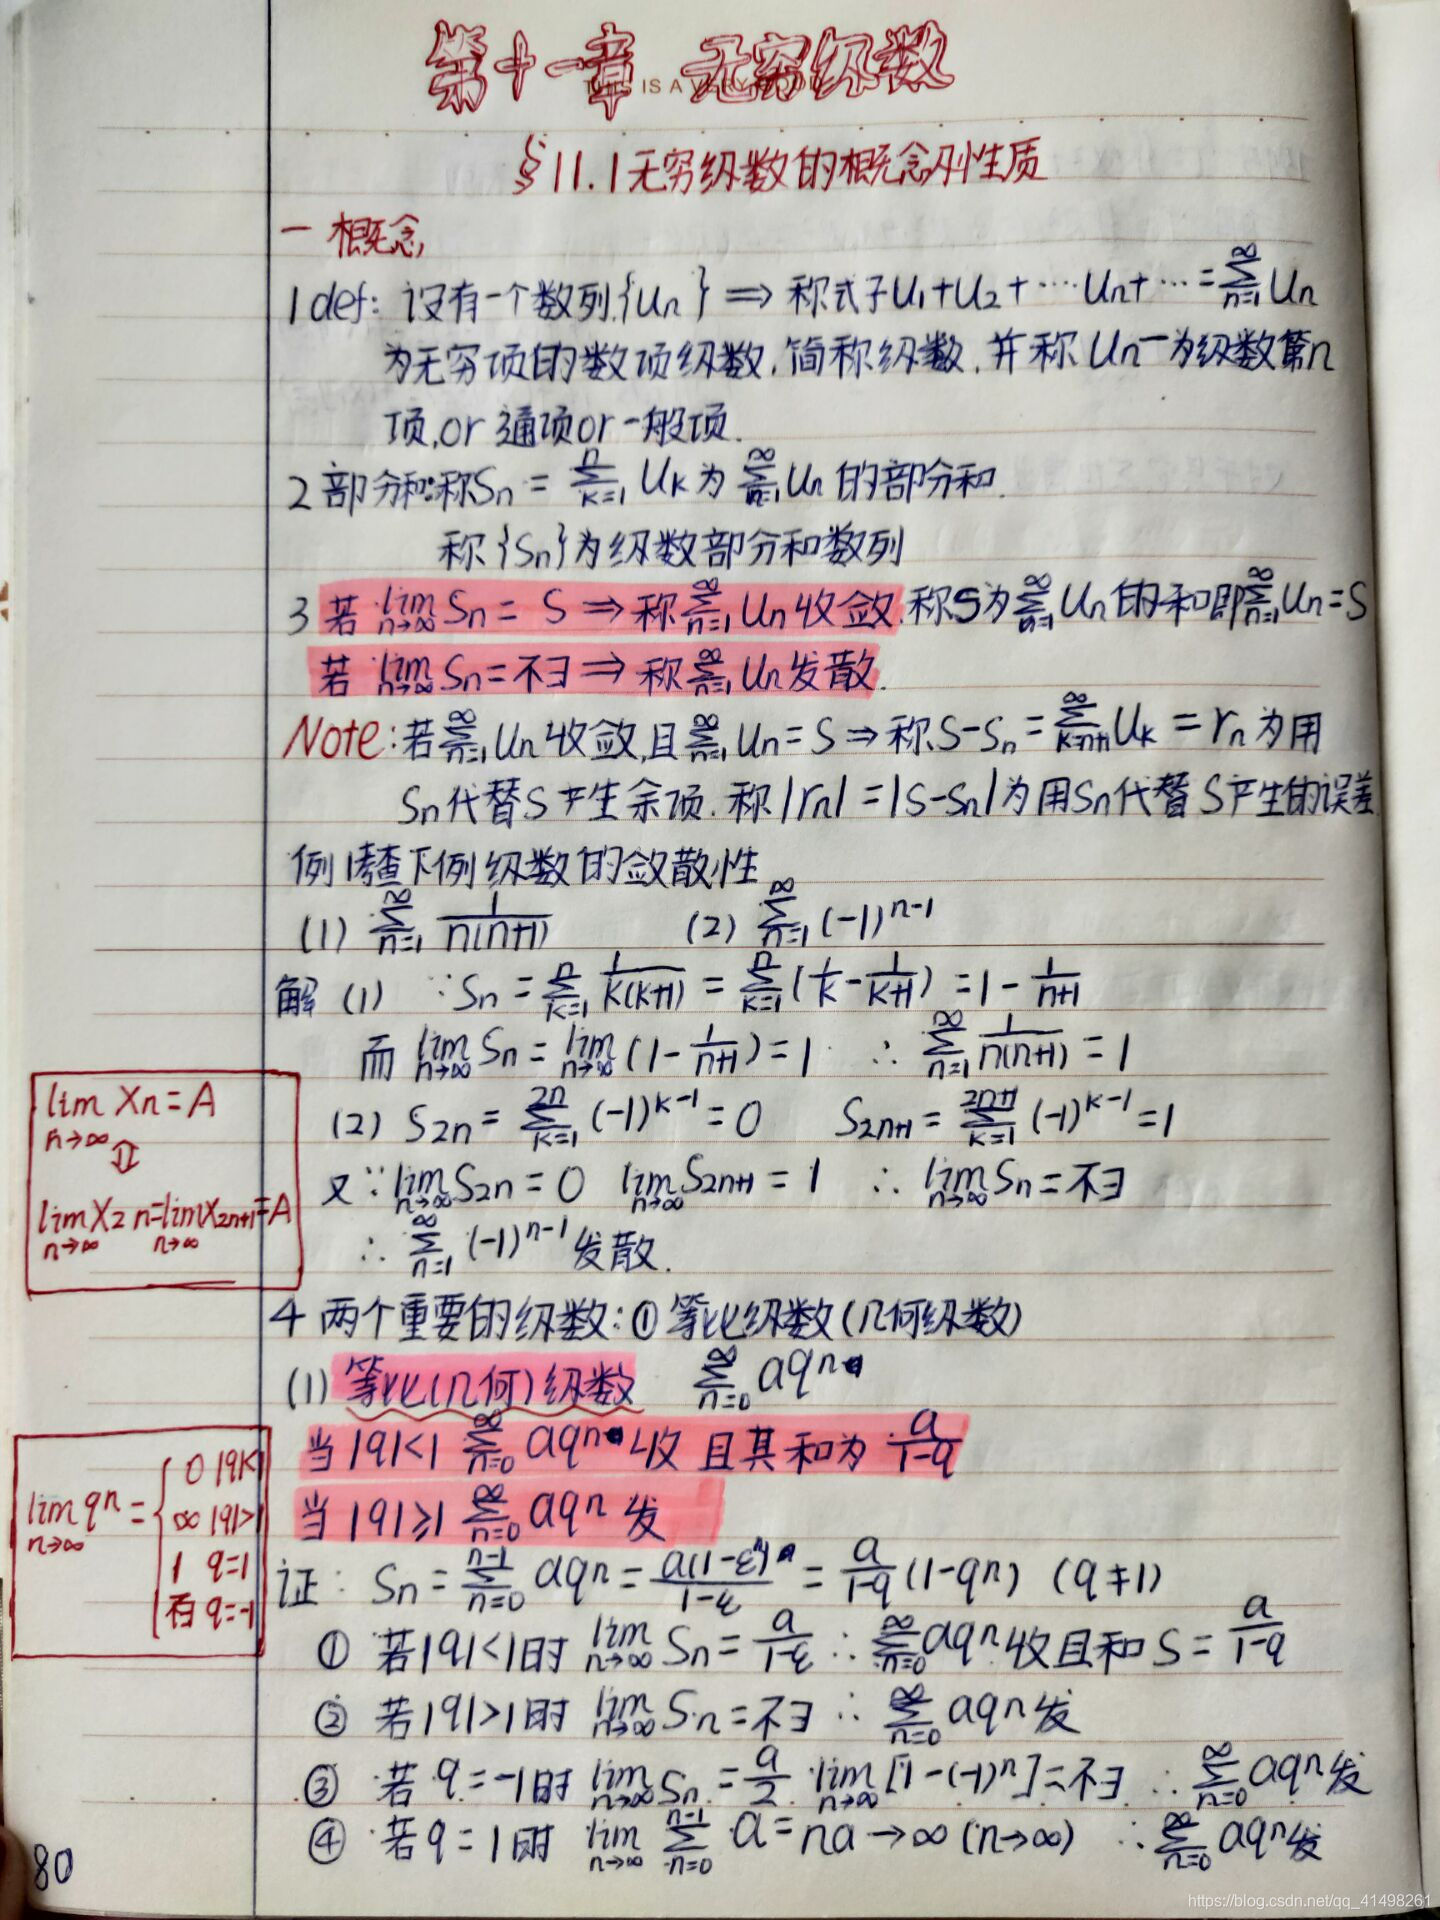 第十一章 无穷级数
§11.1 无穷级数的概念及性质
一 概念
1 def: 设有一个数列{Un} ⟹ 称式子U₁+U₂+⋯Un+⋯=∑_{n=1}^{∞} Un
为无穷项的数项级数,简称级数,并称Un—为级数第n
项,or 通项or一般项.
2 部分和:称Sn = ∑_{k=1}^{n} Uk 为 ∑_{n=1}^{∞} Un 的部分和.
称{Sn}为级数部分和数列
3 若 lim_{n→∞} Sn = S ⟹ 称∑_{n=1}^{∞} Un 收敛.称S为∑_{n=1}^{∞} Un 的和即∑_{n=1}^{∞} Un=S
若 lim_{n→∞} Sn=不∃ ⟹ 称∑_{n=1}^{∞} Un 发散.
Note:若∑_{n=1}^{∞} Un 收敛,且∑_{n=1}^{∞} Un=S ⟹ 称S-Sn=∑_{k=n+1}^{∞} Uk = rn 为用
Sn代替S产生余项.称|rn|=|S-Sn|为用Sn代替S产生的误差
例1 查下例级数的敛散性
(1) ∑_{n=1}^{∞} 1/(n(n+1)) (2) ∑_{n=1}^{∞} (-1)^{n-1}
解 (1) ∵Sn = ∑_{k=1}^{n} 1/(k(k+1)) = ∑_{k=1}^{n} (1/k - 1/(k+1)) = 1 - 1/(n+1)
而 lim_{n→∞} Sn = lim_{n→∞} (1 - 1/(n+1)) = 1 ∴ ∑_{n=1}^{∞} 1/(n(n+1)) = 1
(2) S₂n = ∑_{k=1}^{2n} (-1)^{k-1} = 0 S₂n+1 = ∑_{k=1}^{2n+1} (-1)^{k-1} = 1
又∵ lim_{n→∞} S₂n = 0 lim_{n→∞} S₂n+1 = 1 ∴ lim_{n→∞} Sn = 不∃
∴ ∑_{n=1}^{∞} (-1)^{n-1} 发散.
lim_{n→∞} Xn = A
⇕
lim_{n→∞} X₂n = lim_{n→∞} X₂n+1 = A
4 两个重要的级数:① 等比级数(几何级数)
(1) 等比(几何)级数 ∑_{n=0}^{∞} aqⁿ
当 |q|<1 ∑_{n=0}^{∞} aqⁿ 收 且其和为 a/(1-q)
当 |q|≥1 ∑_{n=0}^{∞} aqⁿ 发
lim_{n→∞} qⁿ = { 0 |q|<1
∞ |q|>1
1 q=1
不∃ q=-1
证: Sn = ∑_{n=0}^{n-1} aqⁿ = a(1-qⁿ)/(1-q) = a/(1-q) (1-qⁿ) (q≠1)
① 若|q|<1时 lim_{n→∞} Sn = a/(1-q) ∴ ∑_{n=0}^{∞} aqⁿ 收且和 S = a/(1-q)
② 若|q|>1时 lim_{n→∞} Sn = 不∃ ∴ ∑_{n=0}^{∞} aqⁿ 发
③ 若 q=-1时 lim_{n→∞} Sn = a/2 lim_{n→∞} [1-(-1)ⁿ] = 不∃ ∴ ∑_{n=0}^{∞} aqⁿ 发
④ 若 q=1时 lim_{n→∞} ∑_{n=0}^{n-1} a = na → ∞ (n→∞) ∴ ∑_{n=0}^{∞} aqⁿ 发
80
https://blog.csdn.net/qq_41498261